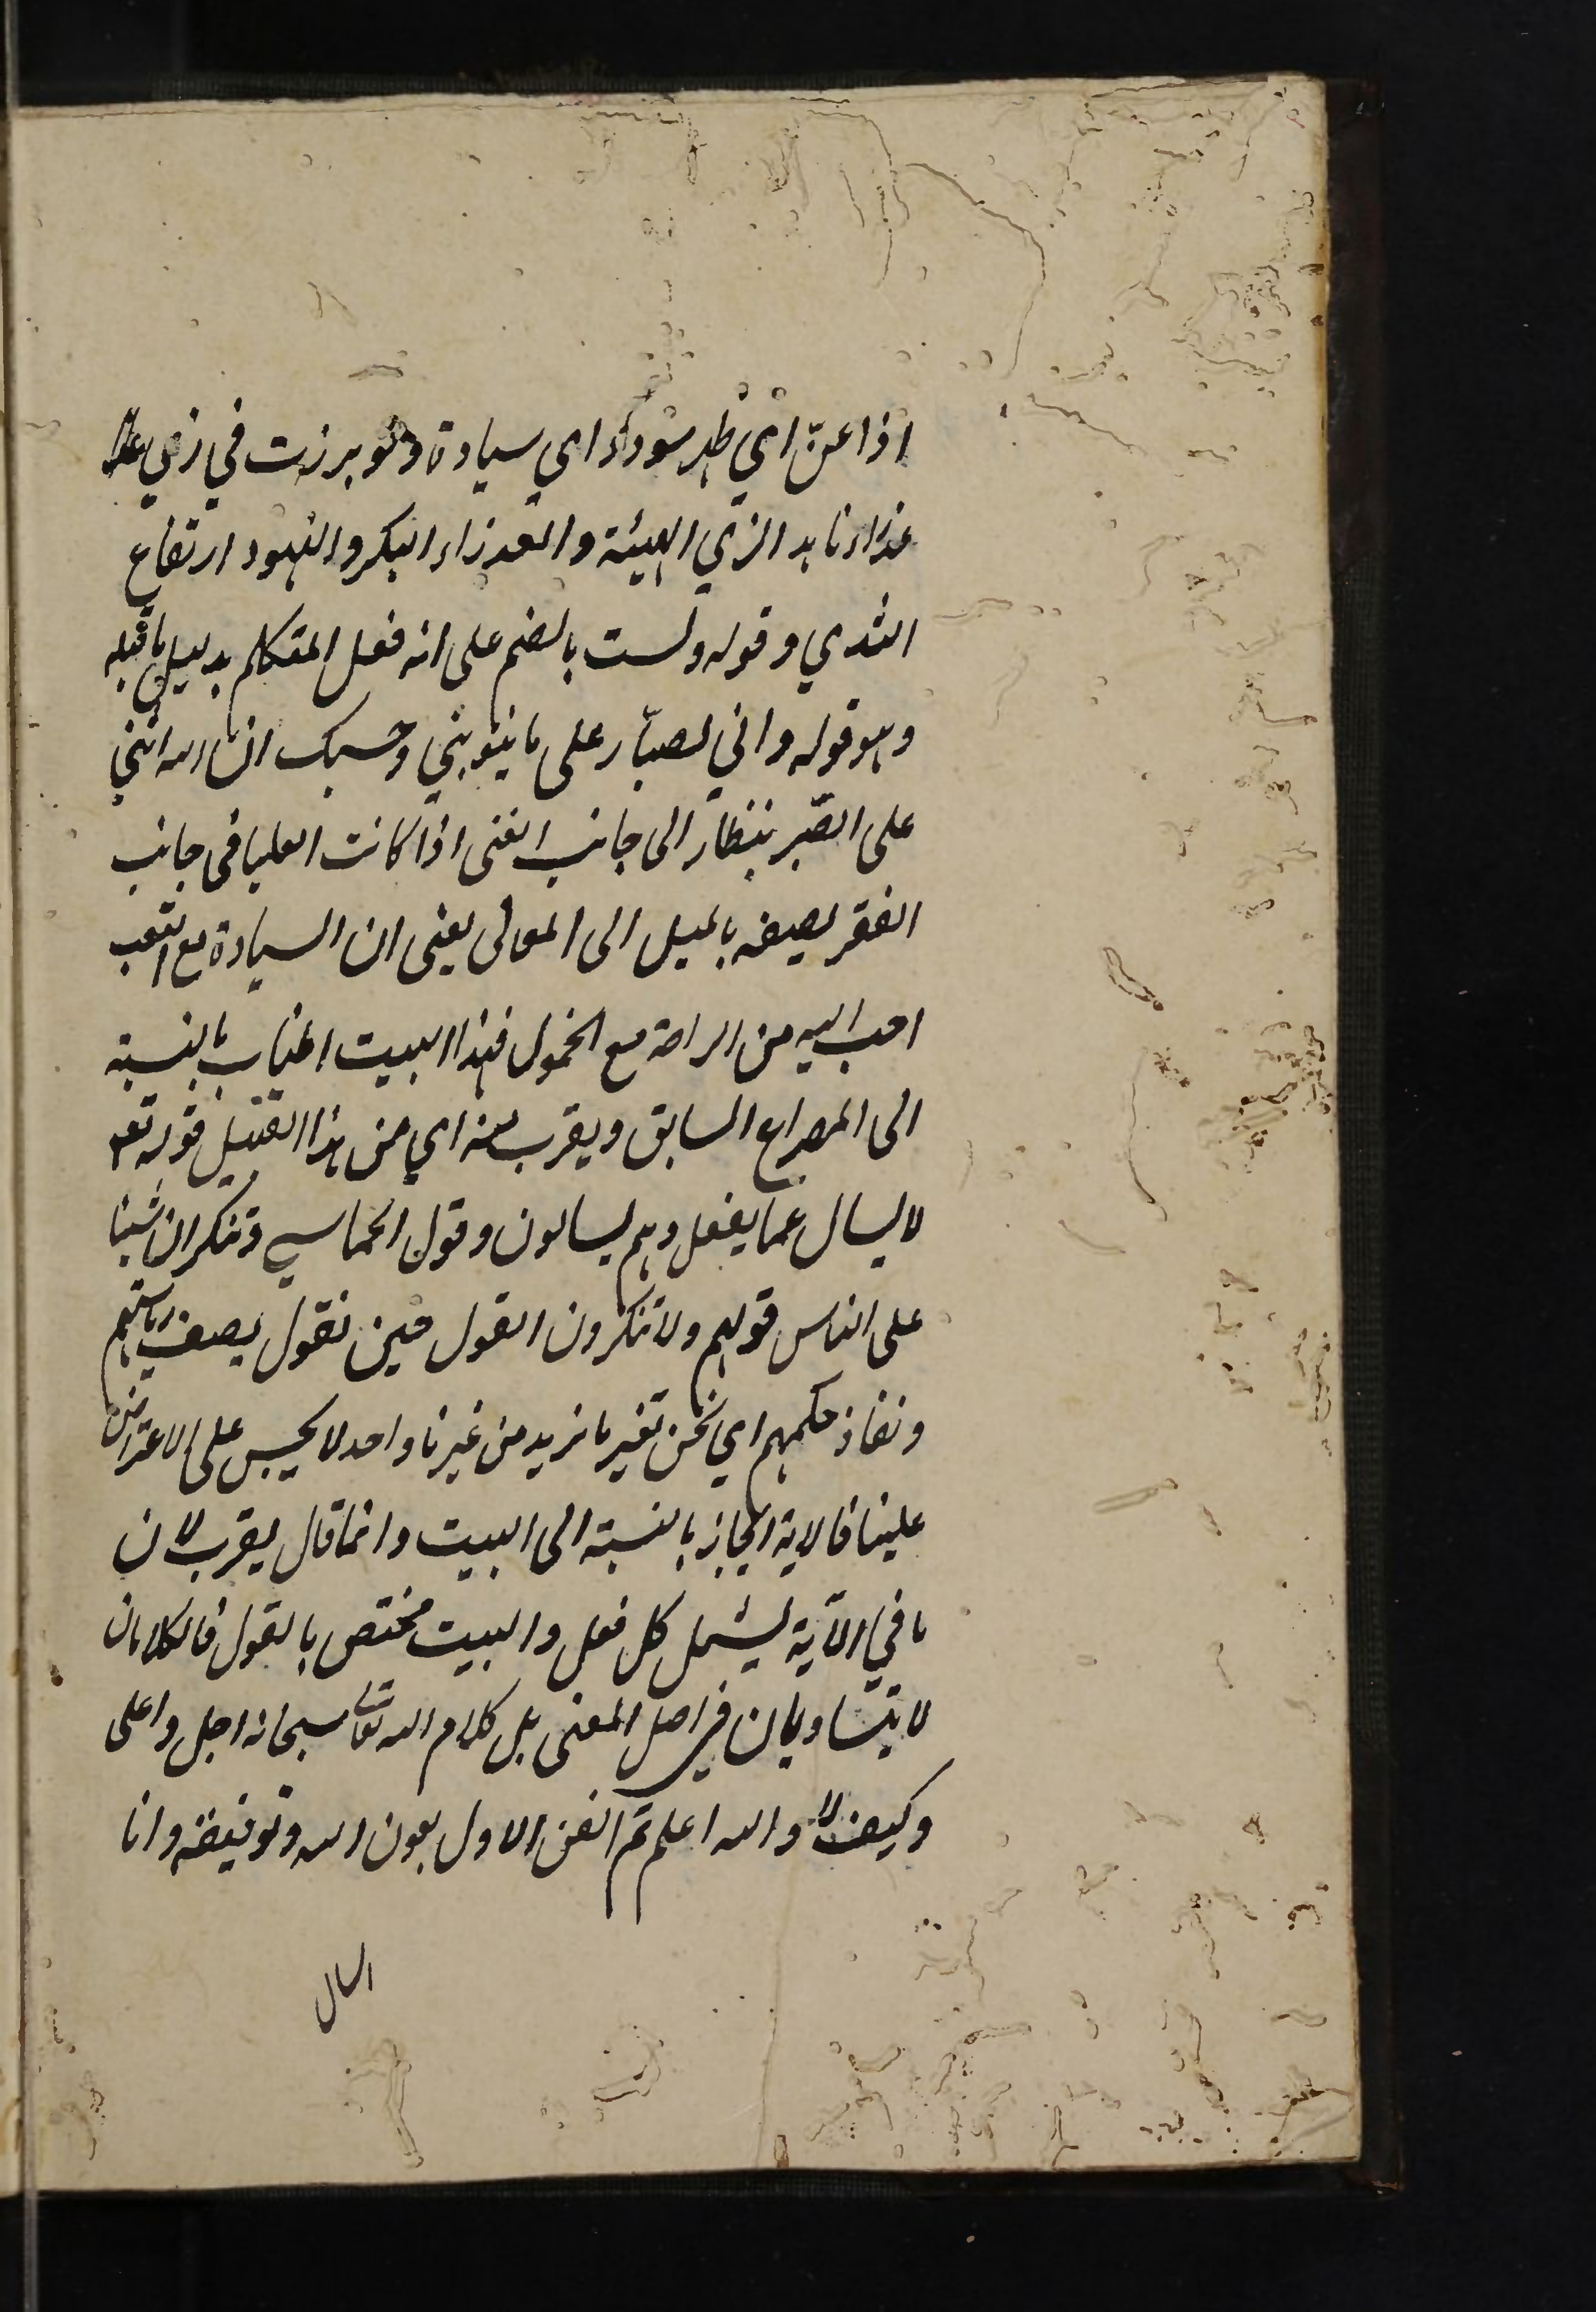 اذا عنّ اي ظهر سودد اي سيادة ولو برزت في زي
عذراء ناهد الزي الهيئة والعذراء البكر والنهود ارتفاع
الثدي وقوله ولست بالضم على انه فعل المتكلم بدليل ما قبله
وهو قوله واني لصبّار على ما ينوبني وحسبك ان الله اثني
على الصّبر بنظار الى جانب الغنى اذا كانت العليا فى جانب
الفقر يصفه بالميل الى المعالى يعنى ان السيادة مع التعب
احب اليه من الراحة مع الخمول فهذا البيت اطناب بالنسبة
الى المصراع السابق ويقرب منه اي من هذا القبيل قوله تعـ
لا يسال عما يفعل وهم يسالون وقول الحماسي وننكر ان شئنا
على الناس قولهم ولا ينكرون القول حين نقول يصف رياستهم
ونفاذ حكمهم اي نحن نغير ما نريد من غيرنا واحد لا يجسر على الاعتراض
علينا فالاية ايجاز بالنسبة الى البيت وانما قال يقرب لان
ما في الآية يشمل كل فعل والبيت مختص بالقول فالكلامان
لا يتساويان في اصل المعنى بل كلام الله تعالى سبحانه اجل واعلى
وكيف لا والله اعلم تم الفن الاول بعون الله وتوفيقه وانا
اسال